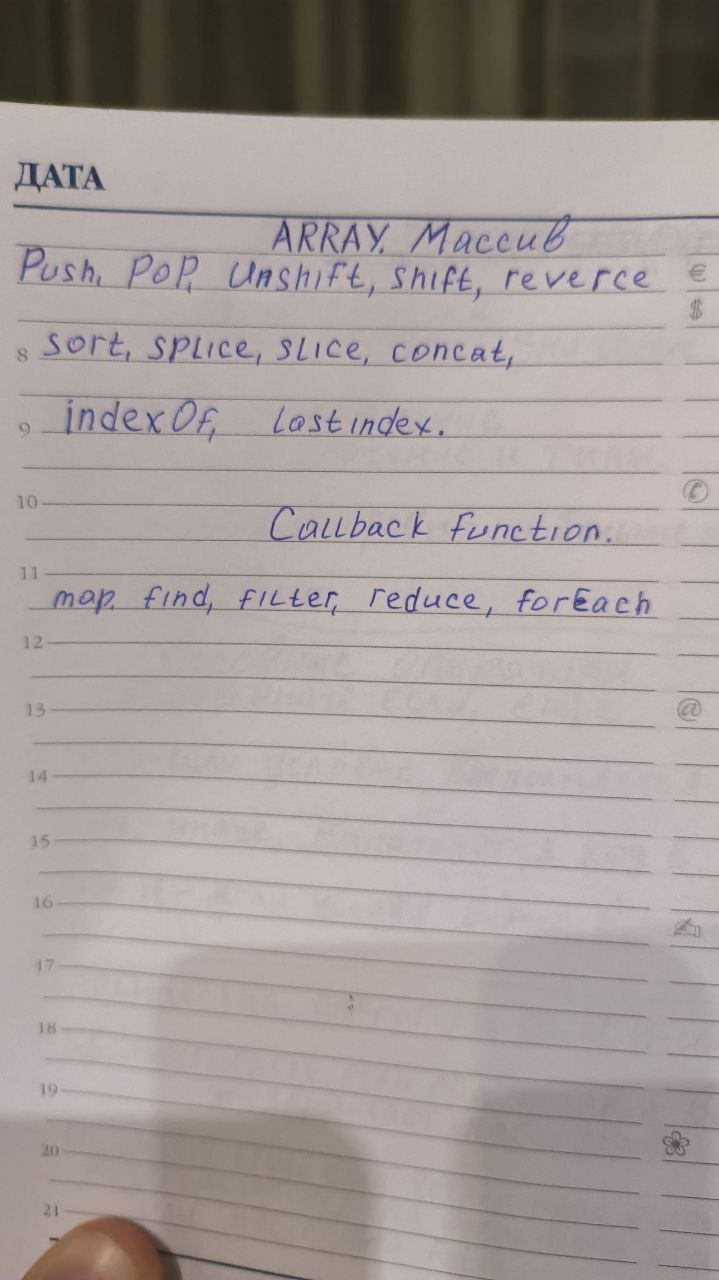 ДАТА
ARRAY. Массив
Push, POP, Unshift, shift, reverce
8 sort, splice, slice, concat,
9 indexOf, lastindex.
10
Callback function.
11
map, find, filter, reduce, forEach
12
13
14
15
16
17
18
19
20
21
€
$
@